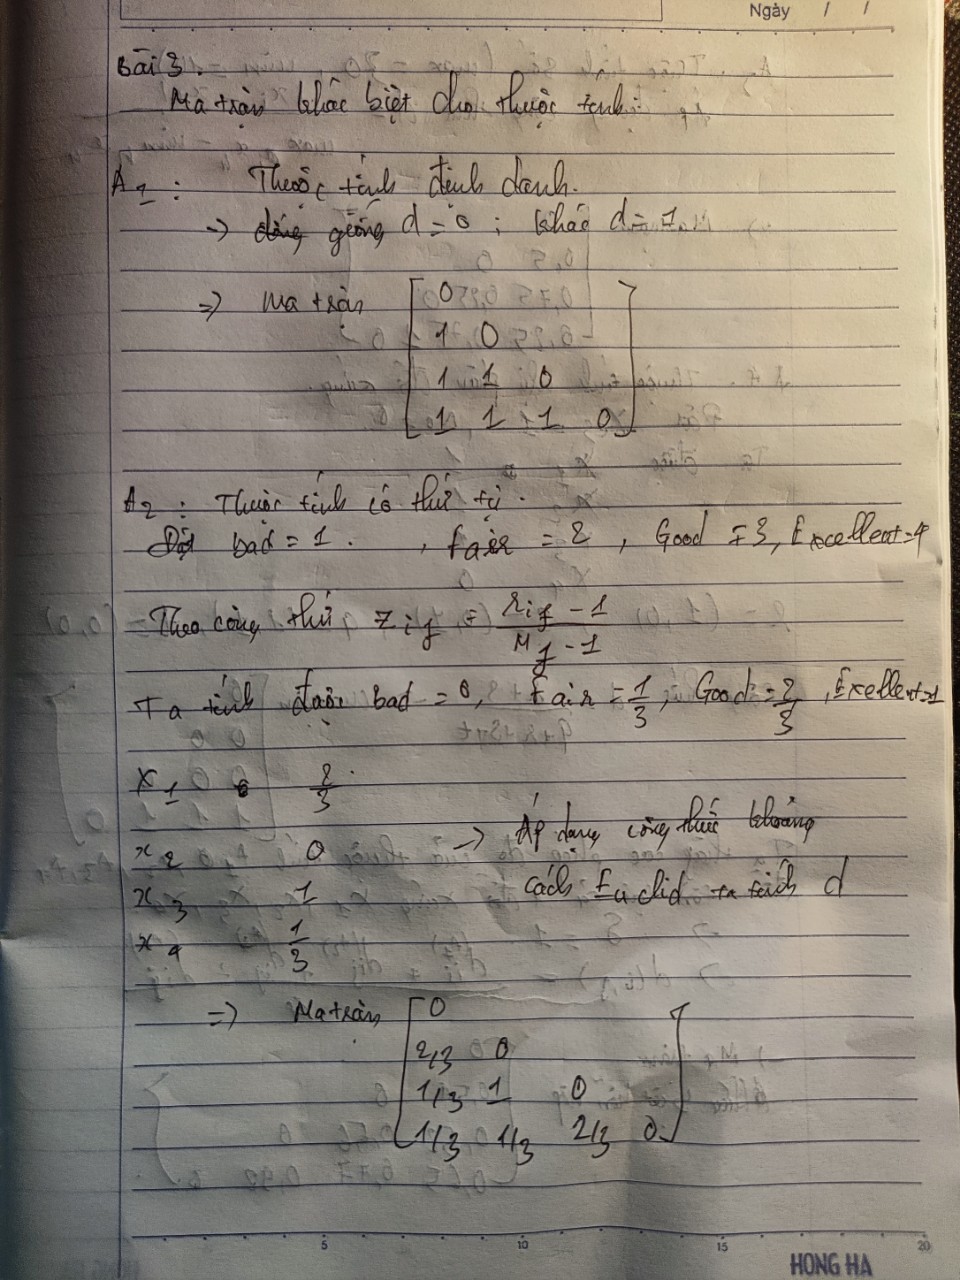 Ngày / /
Bài 3.
Ma trận khác biệt cho thuộc tính:
A1 : Thuộc tính định danh.
→ giống d = 0 ; khác d = 1
=> Ma trận [ 0
1 0
1 1 0
1 1 1 0 ]
A2 : Thuộc tính có thứ tự.
Đặt bad = 1. , fair = 2 , Good = 3, Excellent = 4
- Theo công thức z_if = (r_if - 1) / (M_f - 1)
Ta tính được bad = 0, Fair = 1/3, Good = 2/3, Exellent = 1
x1 2/3
x2 0 → Áp dụng công thức khoảng
x3 1 cách Euclid ta tính d
x4 1/3
=> Ma trận [ 0
2/3 0
1/3 1 0
1/3 1/3 2/3 0 ]
5 10 15 20
HONG HA